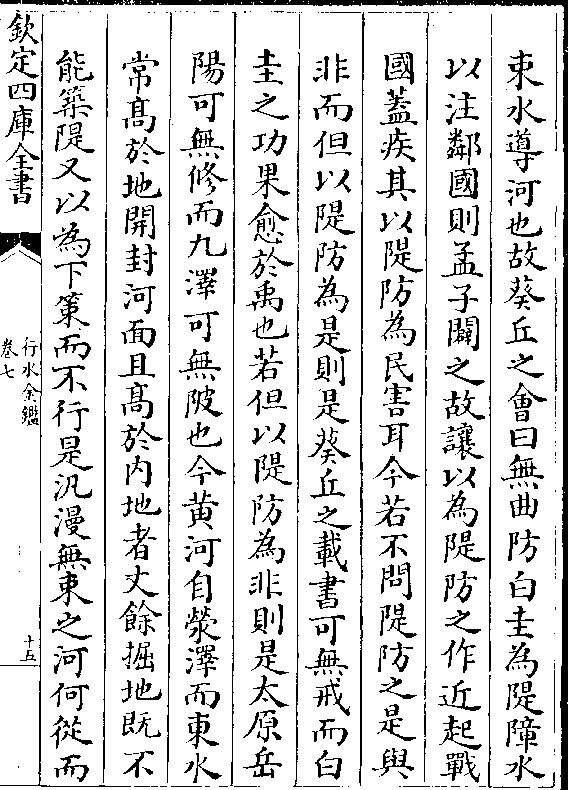 束水導河也故葵丘之會曰無曲防白圭為隄障水
以注鄰國則孟子闢之故讓以為隄防之作近起戰
國蓋疾其以隄防為民害耳今若不問隄防之是與
非而但以隄防為是則是葵丘之載書可無戒而白
圭之功果愈於禹也若但以隄防為非則是太原岳
陽可無修而九澤可無陂也今黄河自滎澤而東水
常髙於地開封河面且髙於内地者丈餘掘地既不
能築隄又以為下策而不行是汎漫無束之河何從而
欽定四庫全書
行水金鑑
卷七
十五